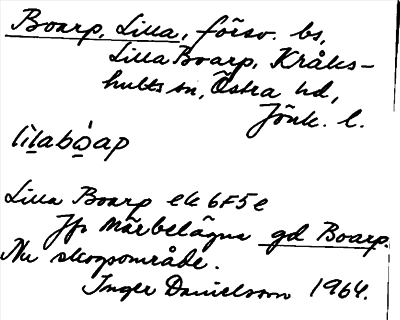 Boarp, Lilla, försv. bs,
Lilla Boarp, Kråks-
hults sn, Östra hd,
Jönk. l.
lìlabòap
Lilla Boarp ek 6F5e
Jfr närbelägna gd Boarp.
Nu skogsområde.
Inger Danielsson 1964.